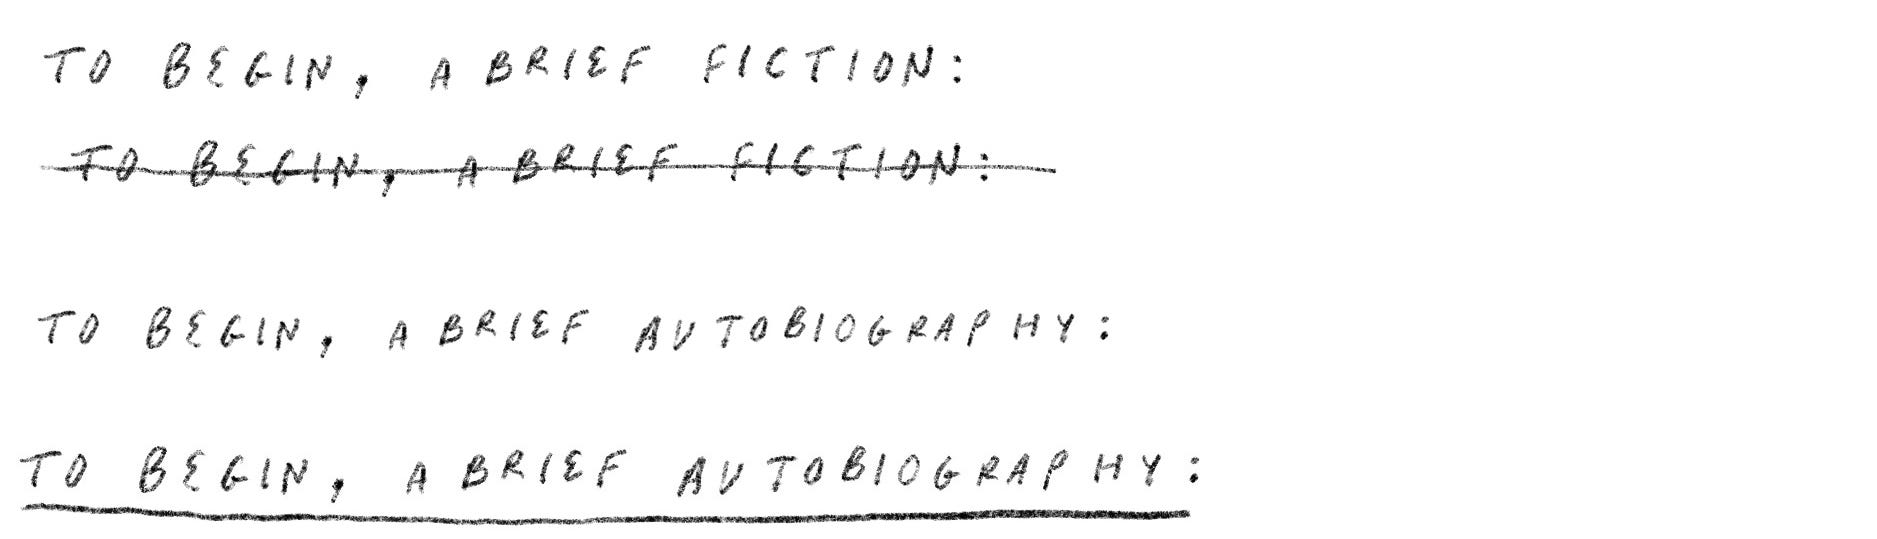 TO BEGIN, A BRIEF FICTION:
TO BEGIN, A BRIEF FICTION:
TO BEGIN, A BRIEF AUTOBIOGRAPHY:
TO BEGIN, A BRIEF AUTOBIOGRAPHY: